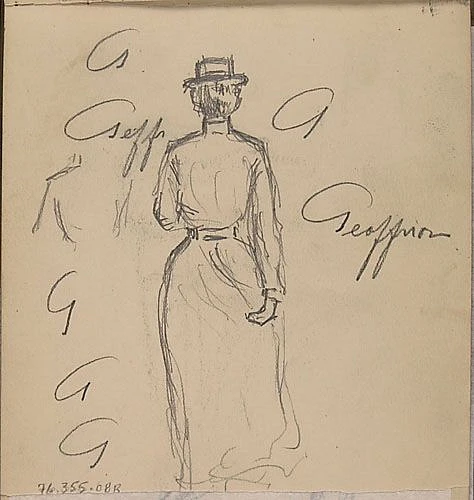 G
Geffr
G
Geoffrion
G
G
G
74.355.08R